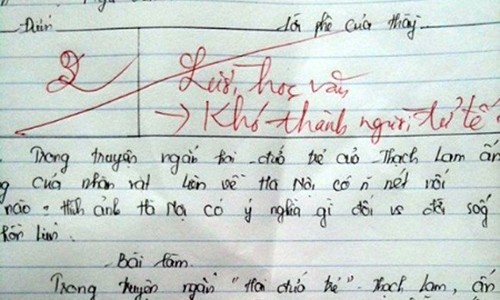 Điểm Lời phê của thầy
2 Lười học văn,
→ Khó thành người tử tế
. Trong truyện ngắn hai đứa trẻ của Thạch Lam ấn
g của nhân vật Liên về Hà Nội có n nét nổi
nào. Hình ảnh Hà Nội có ý nghĩa gì đối vs đời sống
hồn Liên.
Bài làm
Trong truyện ngắn "Hai đứa trẻ" Thạch Lam, ấn